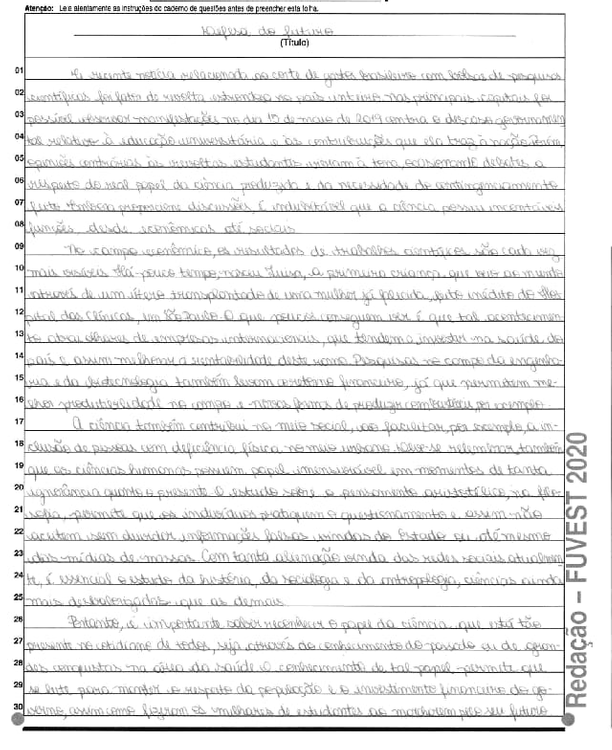 Atenção: Leia atentamente as instruções do caderno de questões antes de preencher esta folha.
Defesa do futuro
(Título)
01 A recente notícia relacionada ao corte de gastos brasileiro com bolsas de pesquisas
02 científicas foi fato de revolta estrondosa no país inteiro. Nas principais capitais foi
03 possível observar manifestações no dia 15 de maio de 2019 contra o descaso governamen
04 tal relativo à educação universitária e às contribuições que ela traz à nação. Porém,
05 opiniões contrárias às revoltas estudantis vieram à tona, ocasionando debates a
06 respeito do real papel da ciência produzida e da necessidade do contingenciamento
07 feito. Embora proporcione discussões, é indubitável que a ciência possui incontáveis
08 funções, desde econômicas até sociais.
09 No campo econômico, os resultados de trabalhos científicos são cada vez
10 mais visíveis. Há pouco tempo, nasceu Luisa, a primeira criança que veio ao mundo
11 através de um útero transplantado de uma mulher já falecida, feito inédito do Hos
12 pital das Clínicas, em São Paulo. O que poucos conseguem ver é que tal acontecimen
13 to atrai olhares de empresas internacionais, que tendem a investir na saúde do
14 país e assim melhorar a rentabilidade deste ramo. Pesquisas no campo da engenha-
15 ria e da biotecnologia também levam a retorno financeiro, já que permitem me-
16 lhor produtibilidade no campo e novas formas de produzir combustíveis, por exemplo.
17 A ciência também contribui no meio social, ao facilitar, por exemplo, a in-
18 clusão de pessoas com deficiência física no meio urbano. Deve-se relembrar também
19 que as ciências humanas possuem papel imensurável em momentos de tanta
20 ignorância quanto o presente. O estudo sobre o pensamento aristotélico, na filo
21 sofia, permite que os indivíduos pratiquem o questionamento e assim não
22 aceitem sem duvidar informações falsas vindas do Estado ou até mesmo
23 das mídias de massas. Com tanta alienação vinda das redes sociais atualmen
24 te, é essencial o estudo da história, da sociologia e da antropologia, ciências ainda
25 mais desvalorizadas que as demais.
26 Portanto, é importante saber reconhecer o papel da ciência, que está tão
27 presente no cotidiano de todos, seja através do conhecimento do passado ou de gran
28 des conquistas na área da saúde. O conhecimento de tal papel permite que
29 se lute para manter o respeito da população e o investimento financeiro do go
30 verno, assim como fizeram os milhares de estudantes ao marcharem pelo seu futuro.
Redação – FUVEST 2020